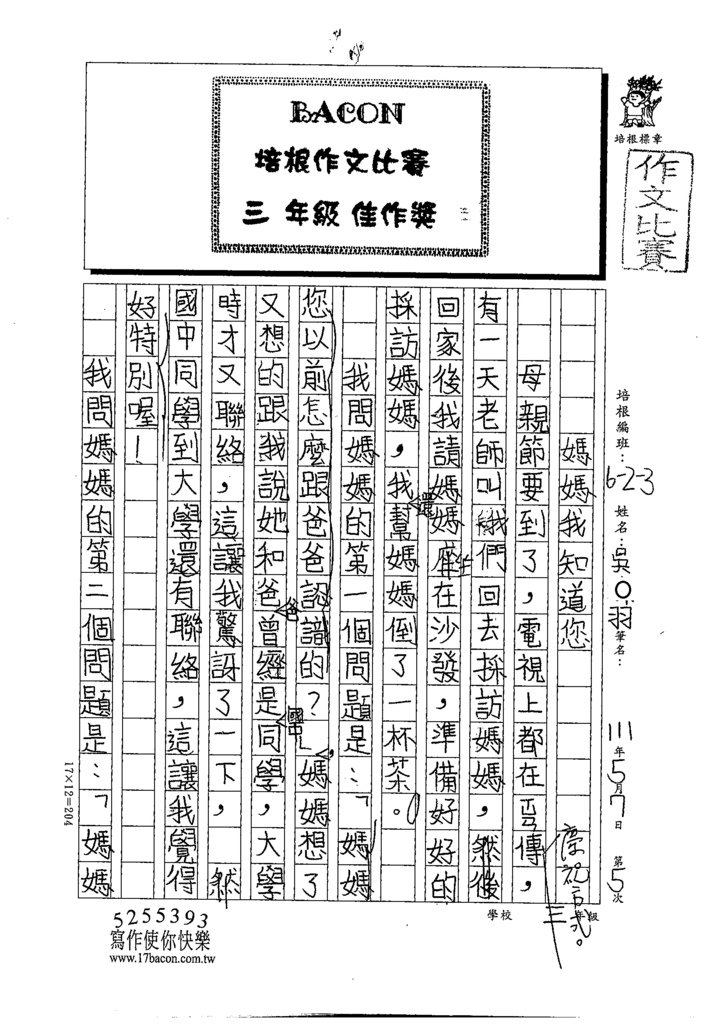 BACON
培根作文比賽
三年級佳作獎
培根標章
作文比賽
培根編班：6-2-3 姓名：吳○羽 筆名：
111年5月7日 第5次
學校 三年級
媽媽我知道您
母親節要到了，電視上都在宣傳，
慶祝方式。
有一天老師叫我們回去採訪媽媽，然後
回家後我請媽媽坐在沙發，準備好好的
採訪媽媽，我還幫媽媽倒了一杯茶。
我問媽媽的第一個問題是：「媽媽
您以前怎麼跟爸爸認識的？」，媽媽想了
又想的跟我說她和爸爸曾經是國中同學，大學
時才又聯絡，這讓我驚訝了一下，然
國中同學到大學還有聯絡，這讓我覺得
好特別喔！
我問媽媽的第二個問題是：「媽媽
17×12=204
5255393
寫作使你快樂
www.17bacon.com.tw